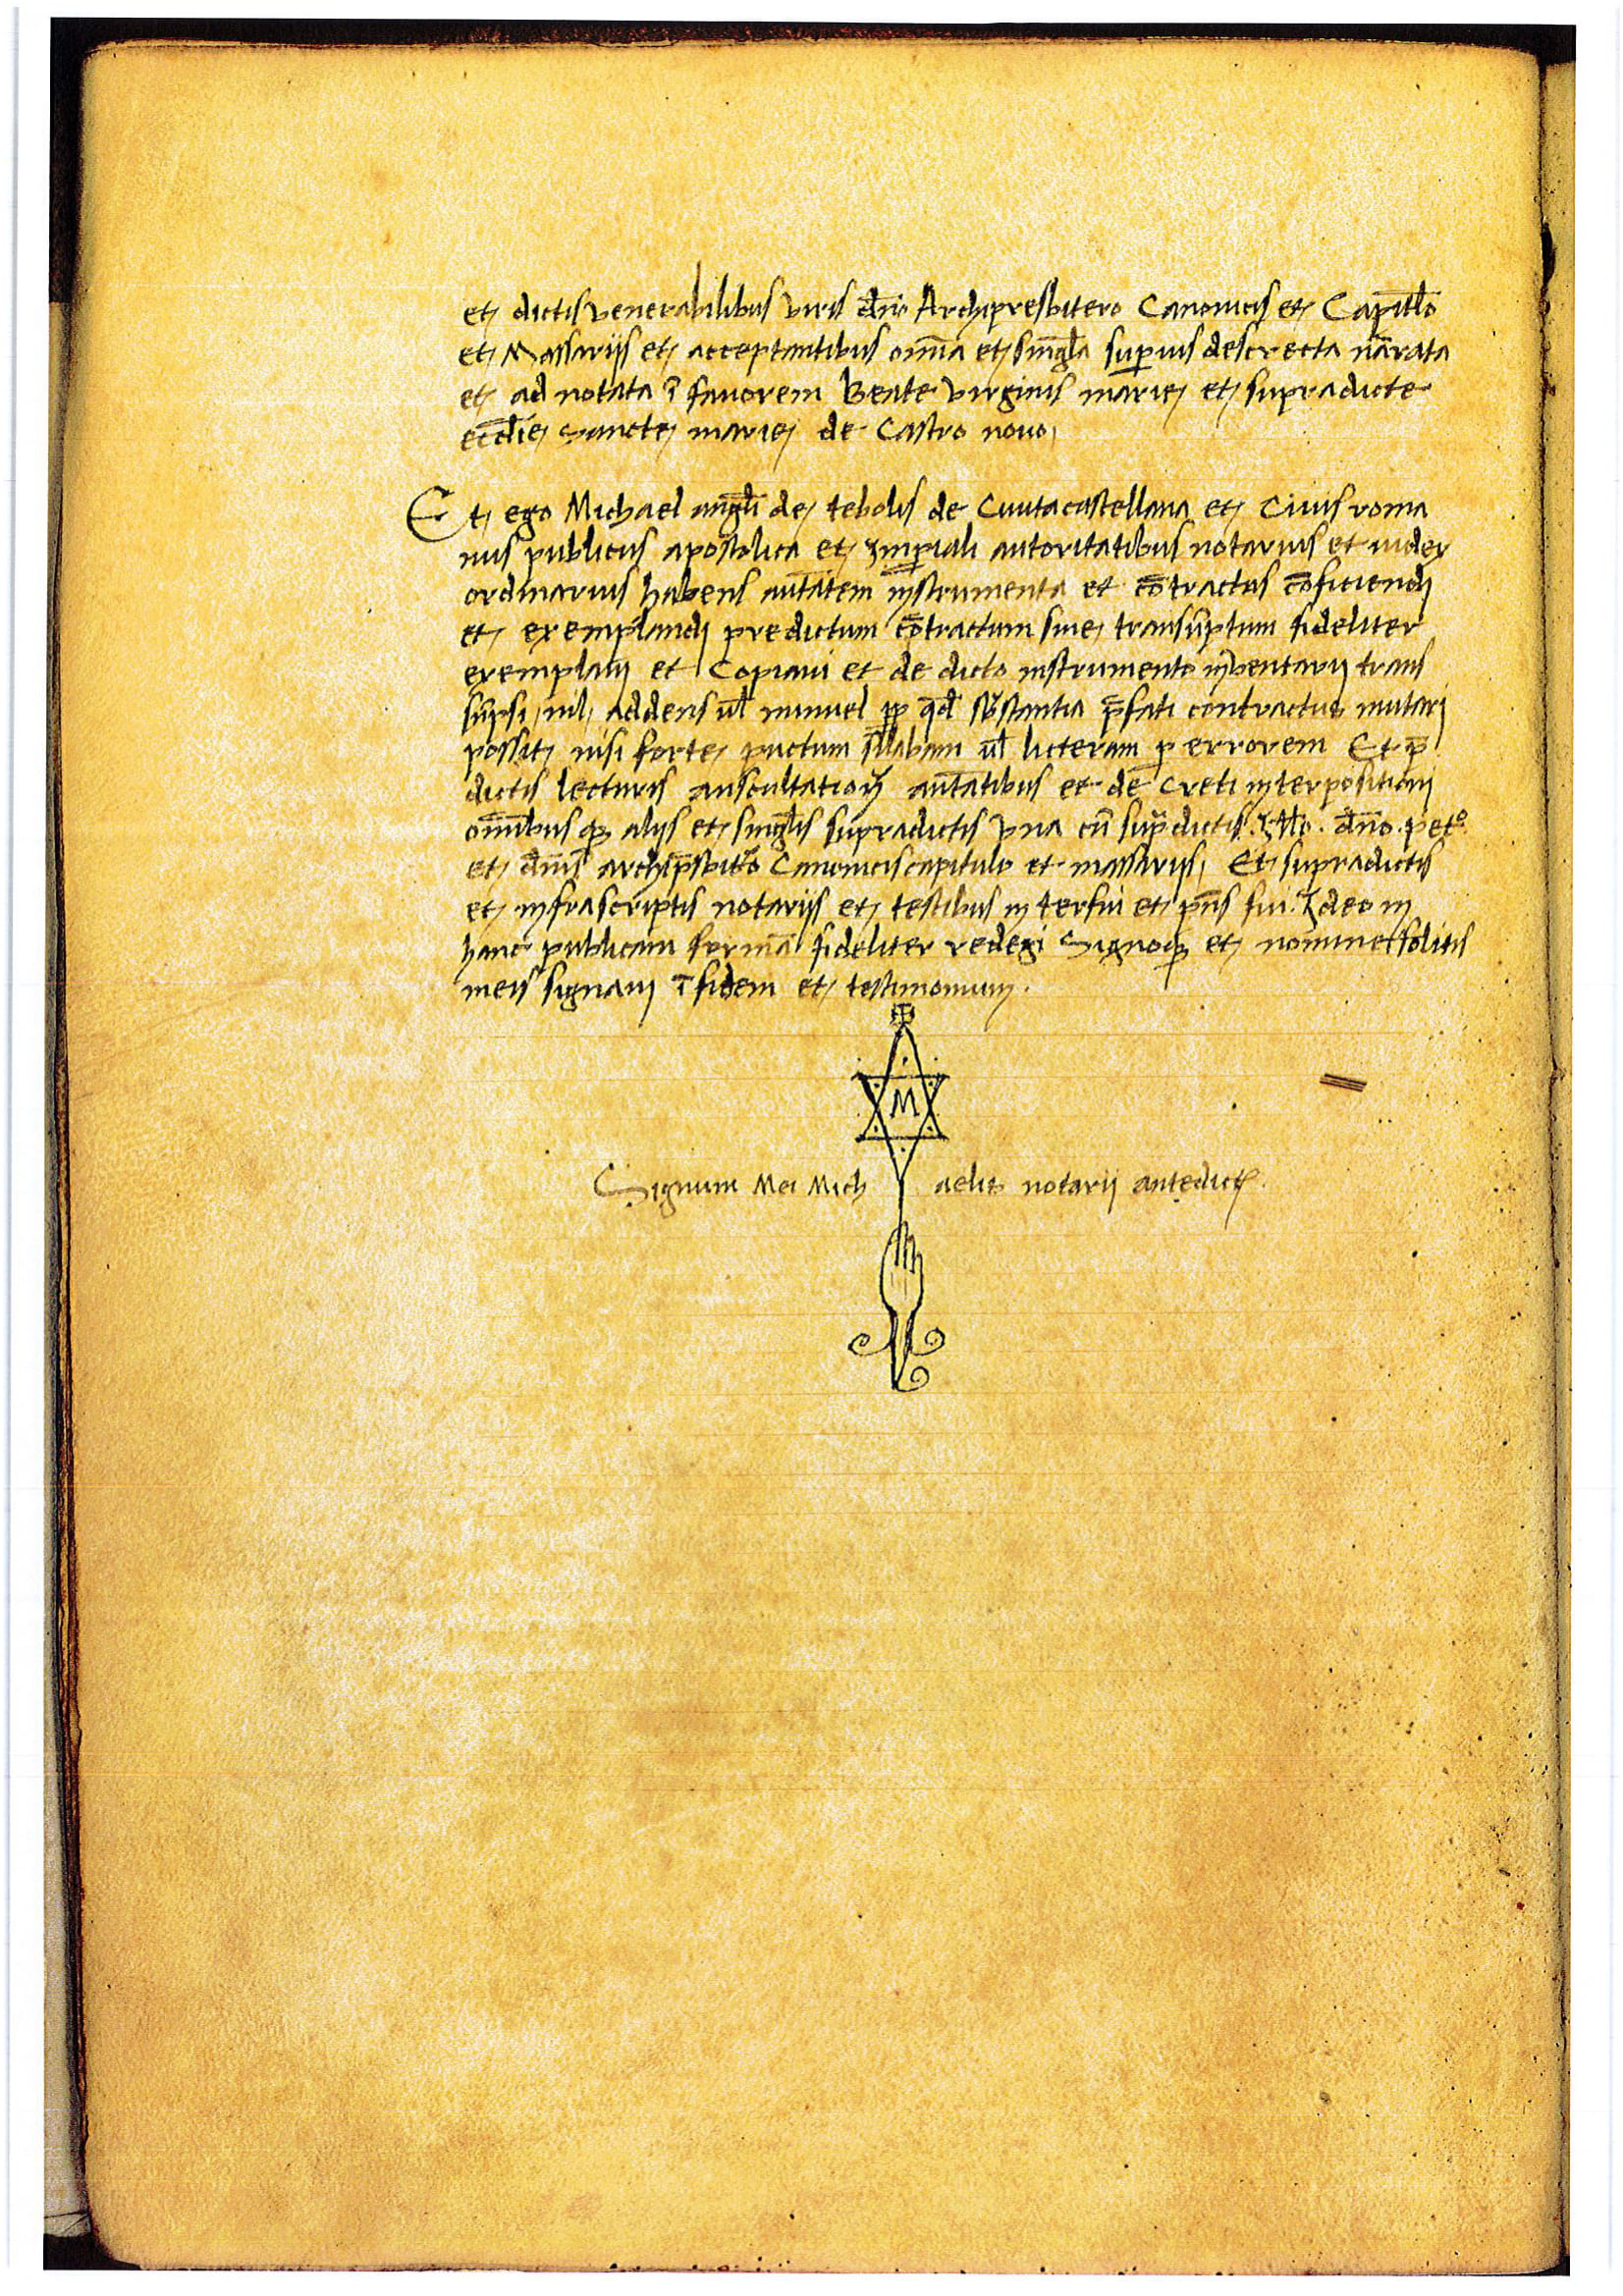 et dictis venerabilibus viris dn̄o Archipresbitero Canonicis et Capitl̄o
et Massarijs et acceptantibus om̄ia et singl̄a superius descrecta nārata
et ad notata ī favorem Beate virginis marie et supradicte
eccl̄ie Sancte marie de Castro novo
Et ego Michael angl̄i de tebolis de Civitacastellana et Civis roma
nus publicus apostolica et Imperiali autoritatibus notarius et iudex
ordinarius habens aut̄atem instrumenta et cōtractus cōficiendi
et exemplandi predictum cōtractum sive transūptum fideliter
exemplavi et Copiavi et de dicto instrumento inventarij trans
sūpsi nil addens vl̄ minuel qd̄ sƀstantia p̄fati contractus mutari
possit nisi forte puctum sillabam vl̄ licteram p errorem Et p̄
dictis lecturis auscultationi aut̄atibus et de Creti interpositioni
om̄ibus qȝ alijs et singl̄is supradictis vna cū supradictis dn̄o pet°
et dn̄is archip̄sbitr̄o Canonicis capitulo et massarijs Et supradictis
et infrascriptis notarijs et testibus in terfui et pn̄s fui Ideo in
hanc publicam formā fideliter redegi Signoqȝ et nomine solitis
meis signavi ī fidem et testimonium
M
Signum Mei Mich aelis notarij antedicti